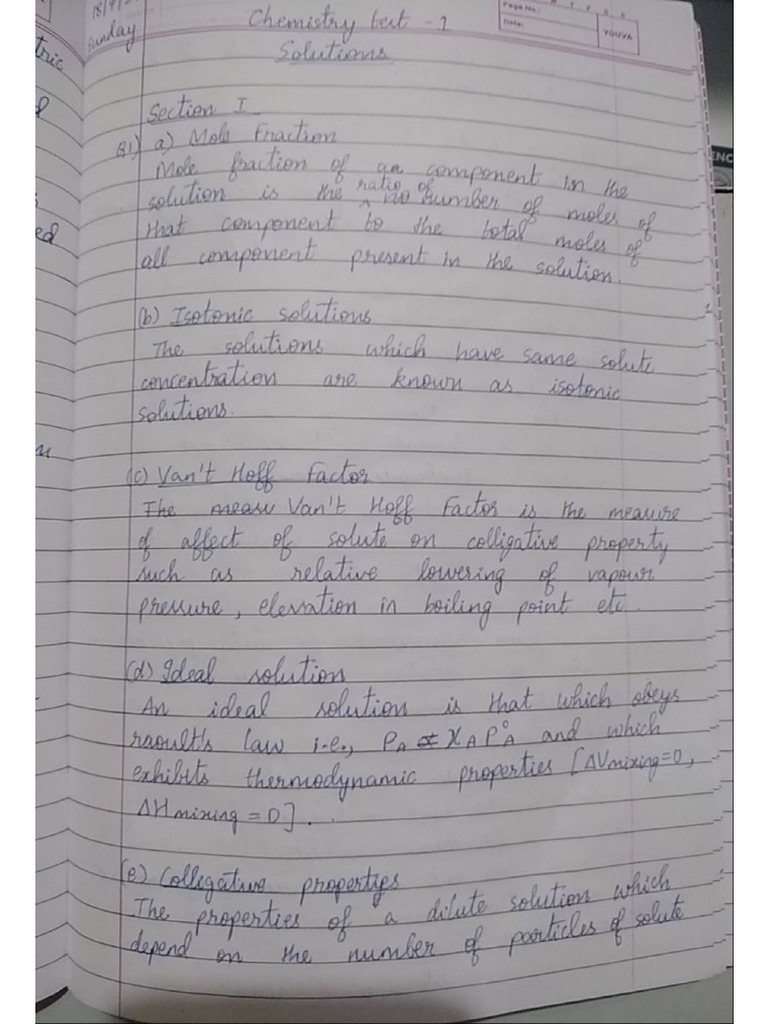 18/9/2
Sunday
Chemistry test - 1
Solutions
Page No.:
Date:
YOUVA
Section I
Q1) a) Mole Fraction
Mole fraction of an component in the
solution is the ratio of number of moles of
that component to the total moles of
all component present in the solution.
(b) Isotonic solutions
The solutions which have same solute
concentration are known as isotonic
solutions.
(c) Van't Hoff Factor
The measu Van't Hoff Factor is the measure
of affect of solute on colligative property
such as relative lowering of vapour
pressure, elevation in boiling point etc.
(d) Ideal solution
An ideal solution is that which obeys
raoult's law i.e., PA = XA P°A and which
exhibits thermodynamic properties [ΔVmixing=0,
ΔHmixing = 0].
(e) Colligative properties
The properties of a dilute solution which
depend on the number of particles of solute
tric
ed
ENC